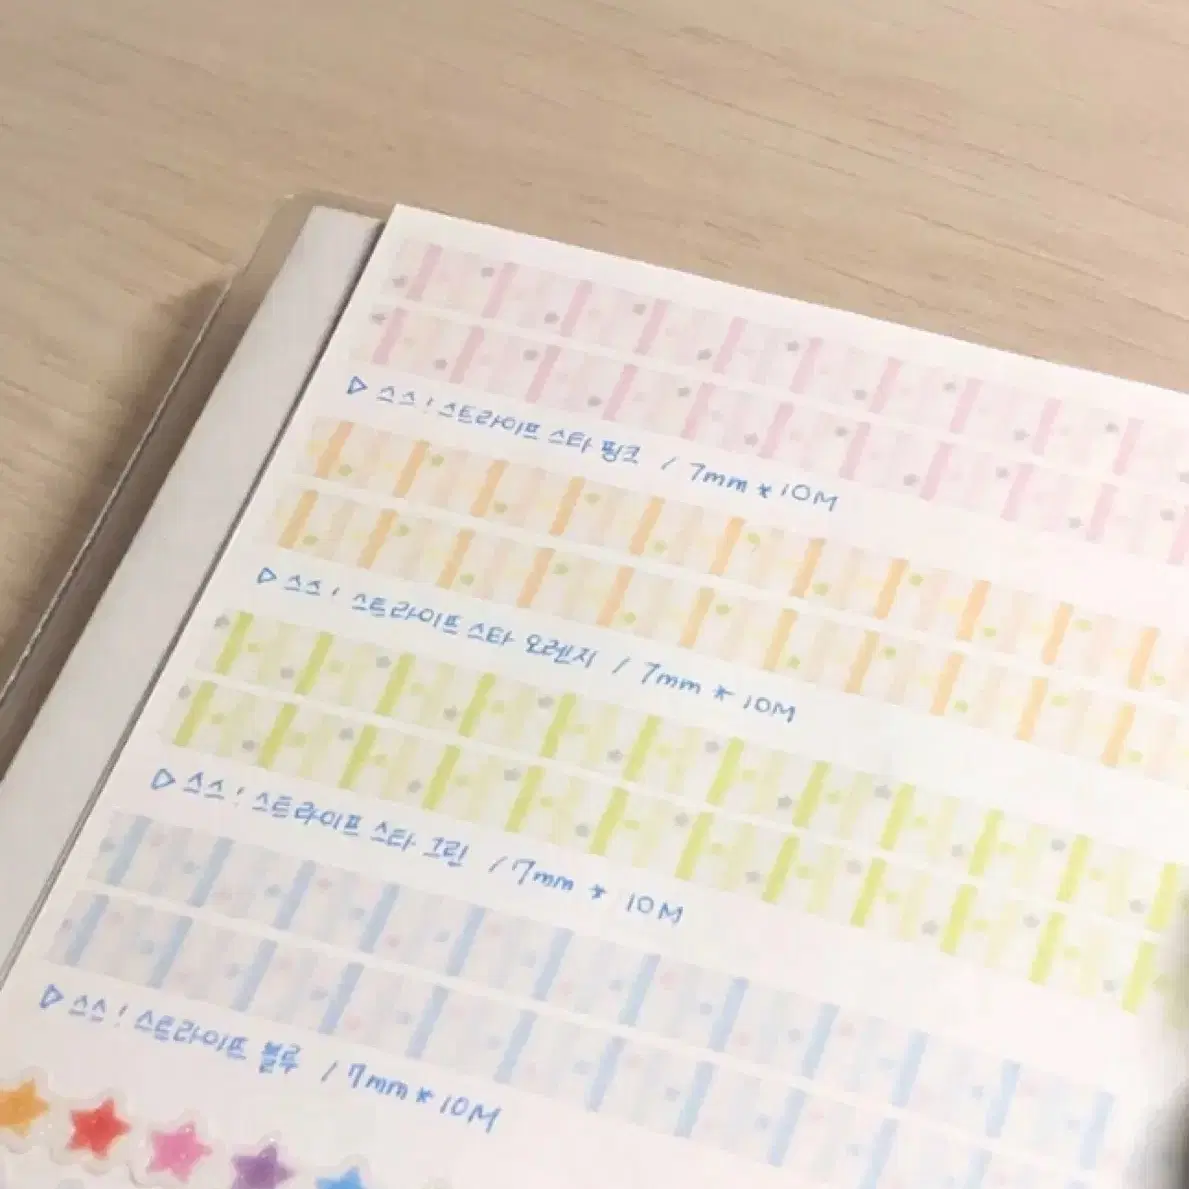 ▷ 스스! 스트라이프 스타 핑크 / 7mm * 10M
▷ 스스! 스트라이프 스타 오렌지 / 7mm * 10M
▷ 스스! 스트라이프 스타 그린 / 7mm * 10M
▷ 스스! 스트라이프 블루 / 7mm * 10M